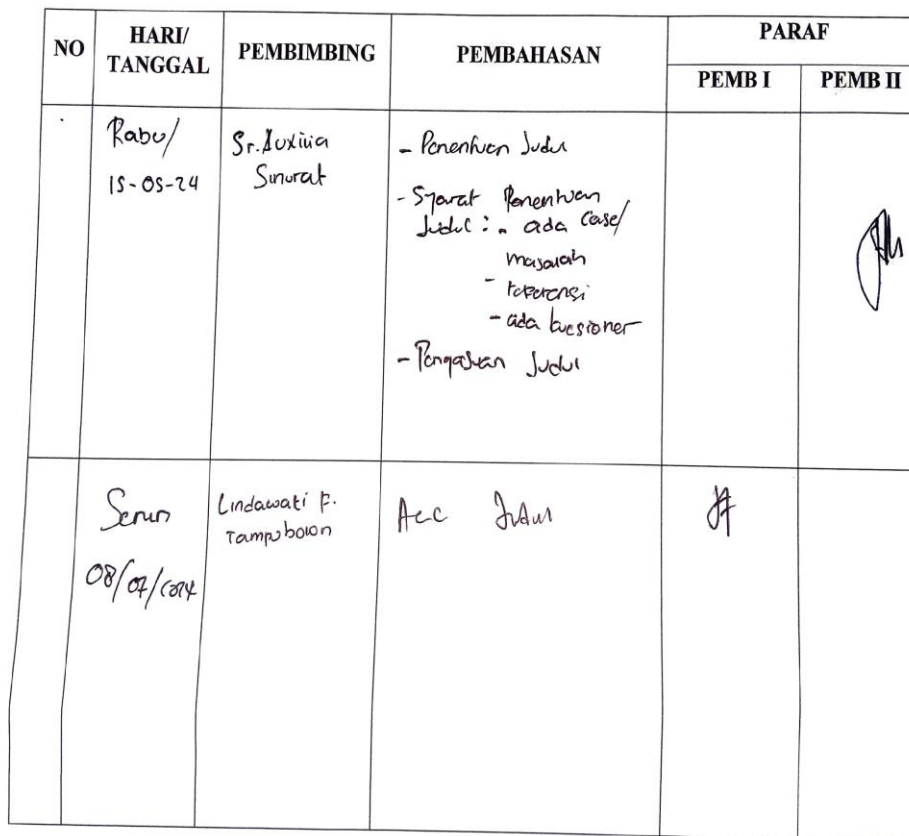 NO
HARI/
TANGGAL
PEMBIMBING
PEMBAHASAN
PARAF
PEMB I
PEMB II
Rabu/
15-05-24
Sr. Auxilia
Sinurat
- Penentuan Judul
- Syarat Penentuan
Judul : - ada case/
masalah
- referensi
- ada kuesioner
- Pengajuan Judul
Senin
08/07/2024
Lindawati F.
Tampubolon
Acc Judul